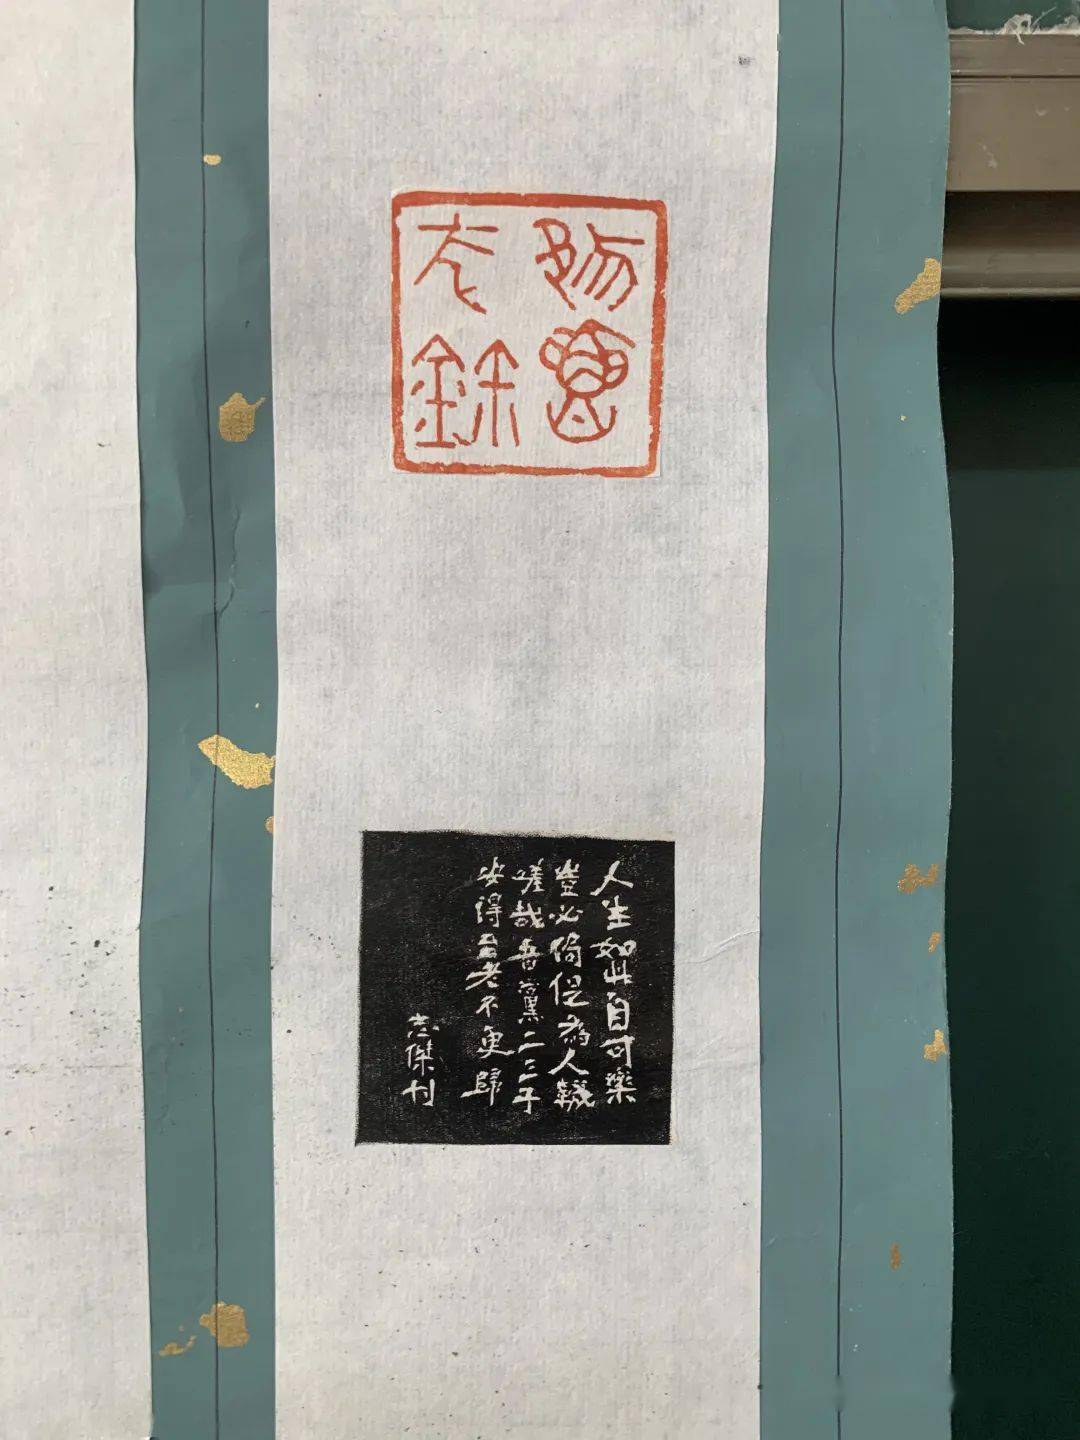 人生如此自可樂
豈必侷促為人鞿
嗟哉吾黨二三子
安得至老不更歸
志傑刊